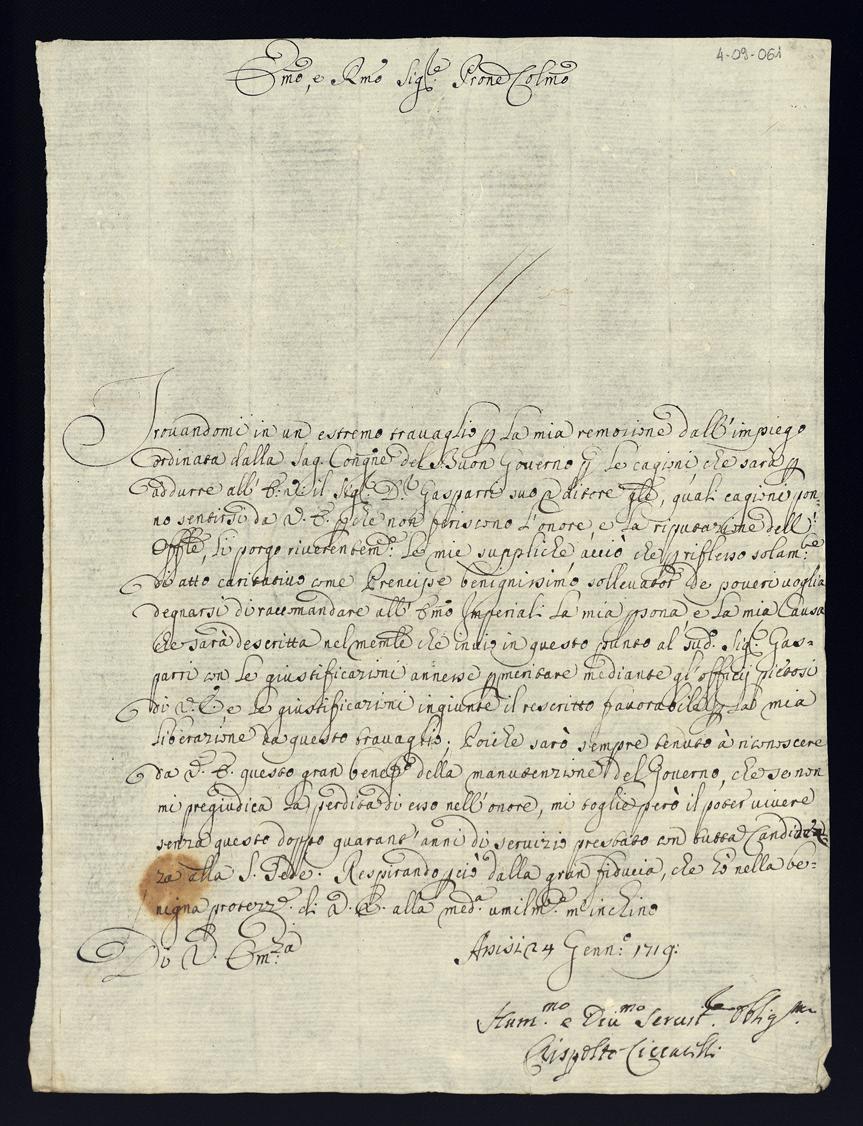 4-09-061
Emo, e Rmo Sigre Prone Colmo
Trovandomi in un estremo travaglio p la mia remozione dall'impiego
ordinata dalla Sag. Congne del Buon Governo p le cagioni, che sarà p
addurre all' E. il Sigr Dr Gasparri suo Uditore gle, quali cagioni pon=
no sentirsi da V. E. pche non feriscono l'onore, e la riputazione dell'
Offle, li porgo riverentemte le mie suppliche acciò che p riflesso solamte
di atto caritativo come Prencipe benignissimo sollevator de poveri voglia
degnarsi di raccomandare all' Emo Imperiali la mia psona, e la mia Causa
che sarà descritta nel memle che invio in questo punto al sudo Sigr Gas=
parri con le giustificazioni annesse p meritare mediante gl'officij pietosi
di V. E. e le giustificazioni ingiunte il rescritto favorabile p la mia
liberazione da questo travaglio; Poiche sarò sempre tenuto à riconoscere
da V. E. questo gran benefo della manutenzione del Governo, che se non
mi pregiudica la perdita di esso nell'onore, mi toglie però il poter vivere
senza questo doppo quarant'anni di servizio prestato con tutta Candidez=
za alla S. Sede. Respirando pciò dalla gran fiducia, che hò nella be=
nigna protezze di V. E. alla meda umilmte m'inchino
Di V. Emza
Assisi 24 Gennro 1719.
Hummo e Divmo Servitre Obligmo
Crispolto Ciccarelli